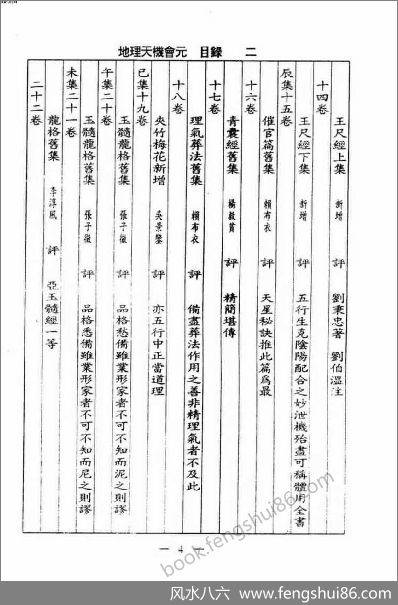 地理天機會元 目錄 二
十四卷
玉尺經上集 新增 劉秉忠著 劉伯溫注
辰集十五卷
玉尺經下集 新增 評 五行生克陰陽配合之妙泄機殆盡可稱體用全書
十六卷
催官篇舊集 賴布衣 評 天星秘訣推此篇為最
十七卷
青囊經舊集 楊救貧 評 精簡堪傳
十八卷
理氣葬法舊集 賴布衣 評 備盡葬法作用之善非精理氣者不及此
巳集十九卷
夾竹梅花新增 吳景鸞 評 亦五行中正當道理
午集二十卷
玉髓龍格舊集 張子微 評 品格悉備雖業形家者不可不知而泥之則謬
未集二十一卷
玉髓龍格舊集 張子微 評 品格悉備雖業形家者不可不知而尼之則謬
二十二卷
龍格舊集 李淳風 評 亞玉髓經一等
— 4 —
book.fengshui86.com
风水八六 www.fengshui86.com